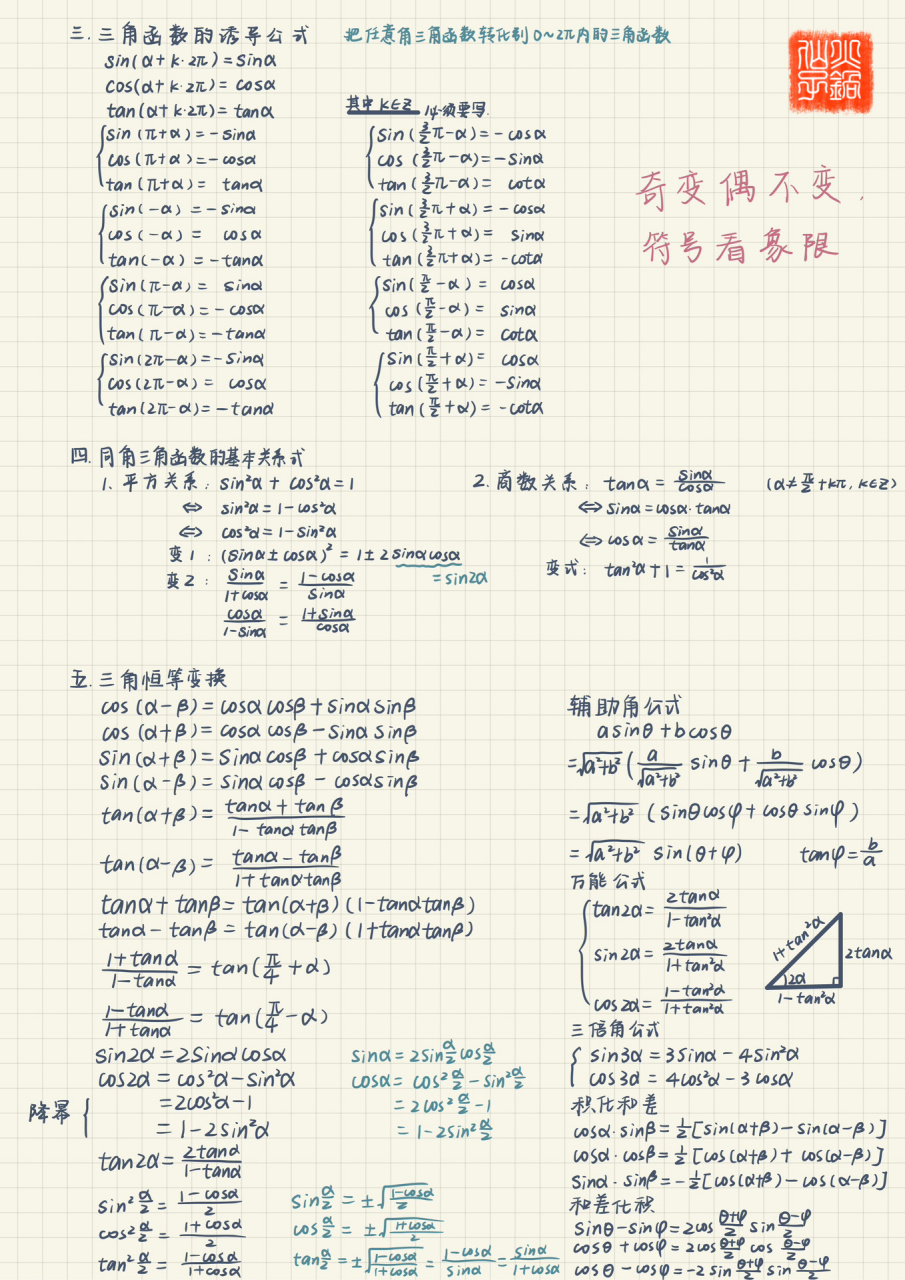 三.三角函数的诱导公式 把任意角三角函数转化到0~2π内的三角函数
sin(α+k·2π)=sinα
cos(α+k·2π)=cosα
tan(α+k·2π)=tanα
其中k∈Z 必须要写.
sin(π+α)=-sinα
cos(π+α)=-cosα
tan(π+α)= tanα
sin(-α)=-sinα
cos(-α)= cosα
tan(-α)=-tanα
sin(π-α)= sinα
cos(π-α)=-cosα
tan(π-α)=-tanα
sin(2π-α)=-sinα
cos(2π-α)= cosα
tan(2π-α)=-tanα
sin(3/2π-α)=-cosα
cos(3/2π-α)=-sinα
tan(3/2π-α)= cotα
sin(3/2π+α)=-cosα
cos(3/2π+α)= sinα
tan(3/2π+α)=-cotα
sin(π/2-α)= cosα
cos(π/2-α)= sinα
tan(π/2-α)= cotα
sin(π/2+α)= cosα
cos(π/2+α)=-sinα
tan(π/2+α)=-cotα
奇变偶不变,
符号看象限
四.同角三角函数的基本关系式
1.平方关系:sin²α+cos²α=1
⇔ sin²α=1-cos²α
⇔ cos²α=1-sin²α
变1:(sinα±cosα)²=1±2sinαcosα
=sin2α
变2:sinα/(1+cosα)=(1-cosα)/sinα
cosα/(1-sinα)=(1+sinα)/cosα
2.商数关系:tanα=sinα/cosα (α≠π/2+kπ,k∈Z)
⇔sinα=cosα·tanα
⇔cosα=sinα/tanα
变式:tan²α+1=1/cos²α
五.三角恒等变换
cos(α-β)=cosαcosβ+sinαsinβ
cos(α+β)=cosαcosβ-sinαsinβ
sin(α+β)=sinαcosβ+cosαsinβ
sin(α-β)=sinαcosβ-cosαsinβ
tan(α+β)=(tanα+tanβ)/(1-tanαtanβ)
tan(α-β)=(tanα-tanβ)/(1+tanαtanβ)
tanα+tanβ=tan(α+β)(1-tanαtanβ)
tanα-tanβ=tan(α-β)(1+tanαtanβ)
(1+tanα)/(1-tanα)=tan(π/4+α)
(1-tanα)/(1+tanα)=tan(π/4-α)
sin2α=2sinαcosα
cos2α=cos²α-sin²α
降幂
=2cos²α-1
=1-2sin²α
tan2α=2tanα/(1-tanα)
sin²α/2=(1-cosα)/2
cos²α/2=(1+cosα)/2
tan²α/2=(1-cosα)/(1+cosα)
sinα=2sinα/2cosα/2
cosα=cos²α/2-sin²α/2
=2cos²α/2-1
=1-2sin²α/2
sinα/2=±√((1-cosα)/2)
cosα/2=±√((1+cosα)/2)
tanα/2=±√((1-cosα)/(1+cosα))=(1-cosα)/sinα=sinα/(1+cosα)
辅助角公式
asinθ+bcosθ
=√(a²+b²)(a/√(a²+b²) sinθ+b/√(a²+b²) cosθ)
=√(a²+b²)(sinθcosφ+cosθsinφ)
=√(a²+b²) sin(θ+φ) tanφ=b/a
万能公式
tan2α=2tanα/(1-tan²α)
sin2α=2tanα/(1+tan²α)
cos2α=(1-tan²α)/(1+tan²α)
1+tan²α
2tanα
2α
1-tan²α
三倍角公式
sin3α=3sinα-4sin²α
cos3α=4cos²α-3cosα
积化和差
cosα·sinβ=1/2[sin(α+β)-sin(α-β)]
cosα·cosβ=1/2[cos(α+β)+cos(α-β)]
sinα·sinβ=-1/2[cos(α+β)-cos(α-β)]
和差化积
sinθ-sinφ=2cos(θ+φ)/2 sin(θ-φ)/2
cosθ+cosφ=2cos(θ+φ)/2 cos(θ-φ)/2
cosθ-cosφ=-2sin(θ+φ)/2 sin(θ-φ)/2